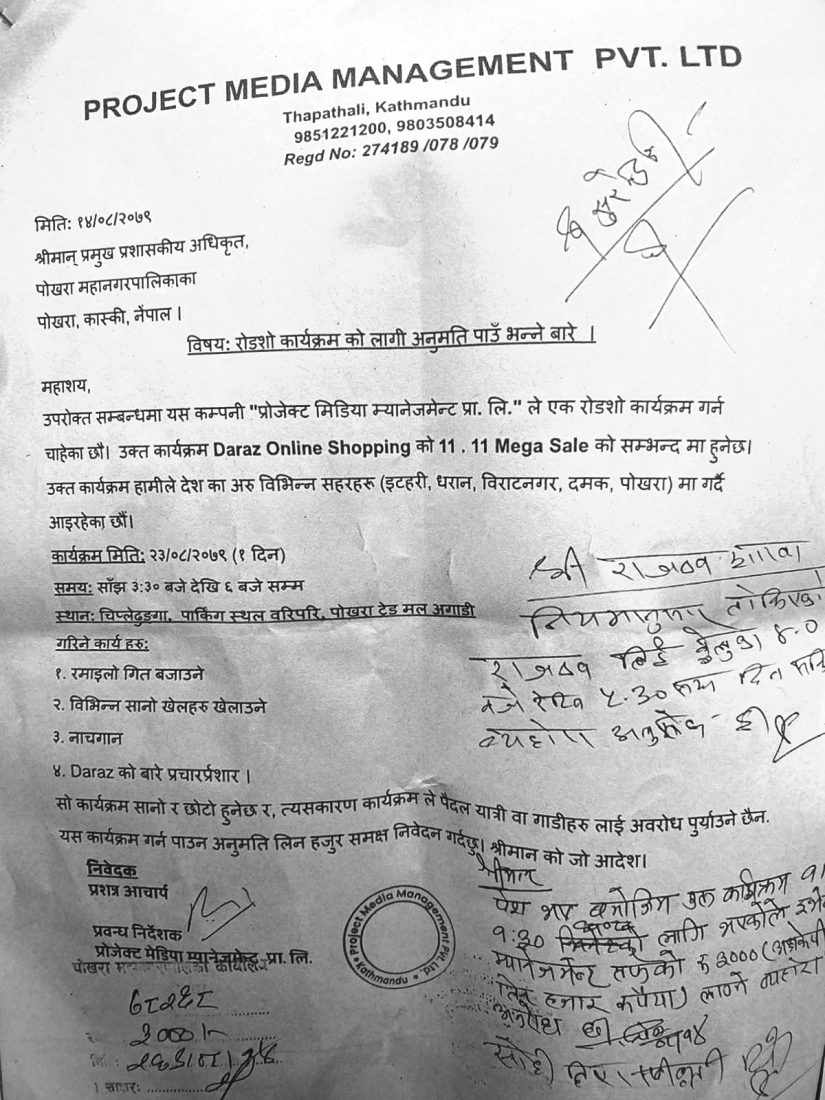 PROJECT MEDIA MANAGEMENT PVT. LTD
Thapathali, Kathmandu
9851221200, 9803508414
Regd No: 274189 /078 /079
मितिः १४/०८/२०७९
श्रीमान् प्रमुख प्रशासकीय अधिकृत,
पोखरा महानगरपालिकाका
पोखरा, कास्की, नेंपाल ।
विषय: रोडशो कार्यक्रम को लागी अनुमति पाउँ भन्ने बारे ।
महाशय,
उपरोक्त सम्बन्धमा यस कम्पनी "प्रोजेक्ट मिडिया म्यानेजमेन्ट प्रा. लि." ले एक रोडशो कार्यक्रम गर्न
चाहेका छौ। उक्त कार्यक्रम Daraz Online Shopping को 11 . 11 Mega Sale को सम्भन्द मा हुनेछ।
उक्त कार्यक्रम हामीले देश का अरु विभिन्न सहरहरू (इटहरी, धरान, विराटनगर, दमक, पोखरा) मा गर्दै
आइरहेका छौं।
कार्यक्रम मिति: २३/०८/२०७९ (१ दिन)
समय: साँझ ३:३० बजे देखि ६ बजे सम्म
स्थान: चिप्लेढुङ्गा, पार्किंग स्थल वरिपरि, पोखरा ट्रेड मल अगाडी
गरिने कार्य हरु:
१. रमाइलो गित बजाउने
२. विभिन्न सानो खेलहरु खेलाउने
३. नाचगान
४. Daraz को बारे प्रचारर्प्रशार ।
सो कार्यक्रम सानो र छोटो हुनेछ र, त्यसकारण कार्यक्रम ले पैदल यात्री वा गाडीहरु लाई अवरोध पुर्याउने छैन.
यस कार्यक्रम गर्न पाउन अनुमति लिन हजुर समक्ष निवेदन गर्दछु। श्रीमान को जो आदेश।
निवेदक
प्रशन्न आचार्य
प्रवन्ध निर्देशक
प्रोजेक्ट मेडिया म्यानेजमेन्ट प्रा. लि.
Project Media Management Pvt. Ltd.
Kathmandu
श्री राजश्व शाखा
नियमानुसार तोकिएको
राजश्व लिई
बजे देखि ५.३० सम्म दिन
व्यहोरा अनुरोध छ।
श्रीमान
पेश भए बमोजिम कार्यक्रम
१:३० लागि भएकोले
म्यानेजमेन्ट तर्फको रु ३०००
तिन हजार रूपैया) लाग्ने व्यहोरा
अनुरोध छ।
३०००।-